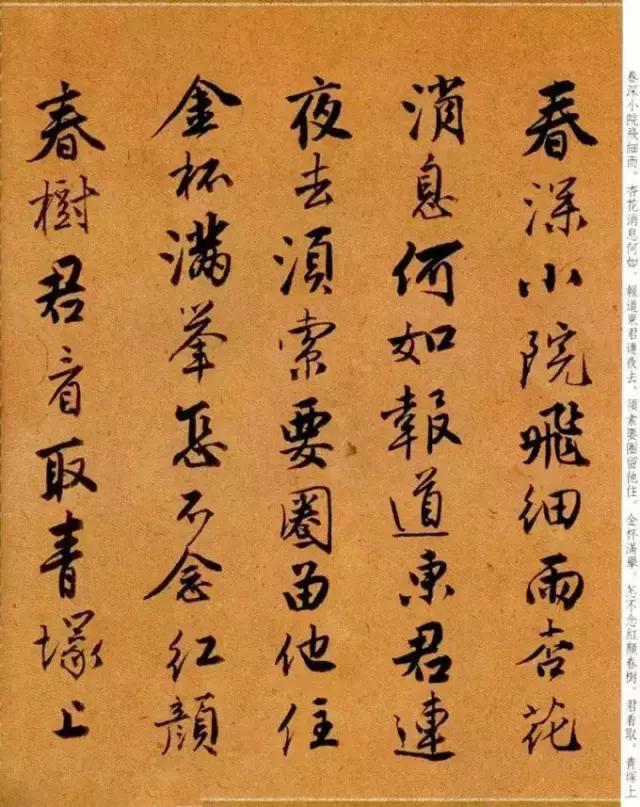 春深小院飛細雨杏花
消息何如報道東君連
夜去須索要圈留他住
金杯滿挙怎不念紅顔
春樹君看取青塚上
春深小院飛細雨。杏花消息何如。報道東君連夜去。須索要圈留他住。金杯滿舉。怎不念紅顏春樹。君看取。青塚上